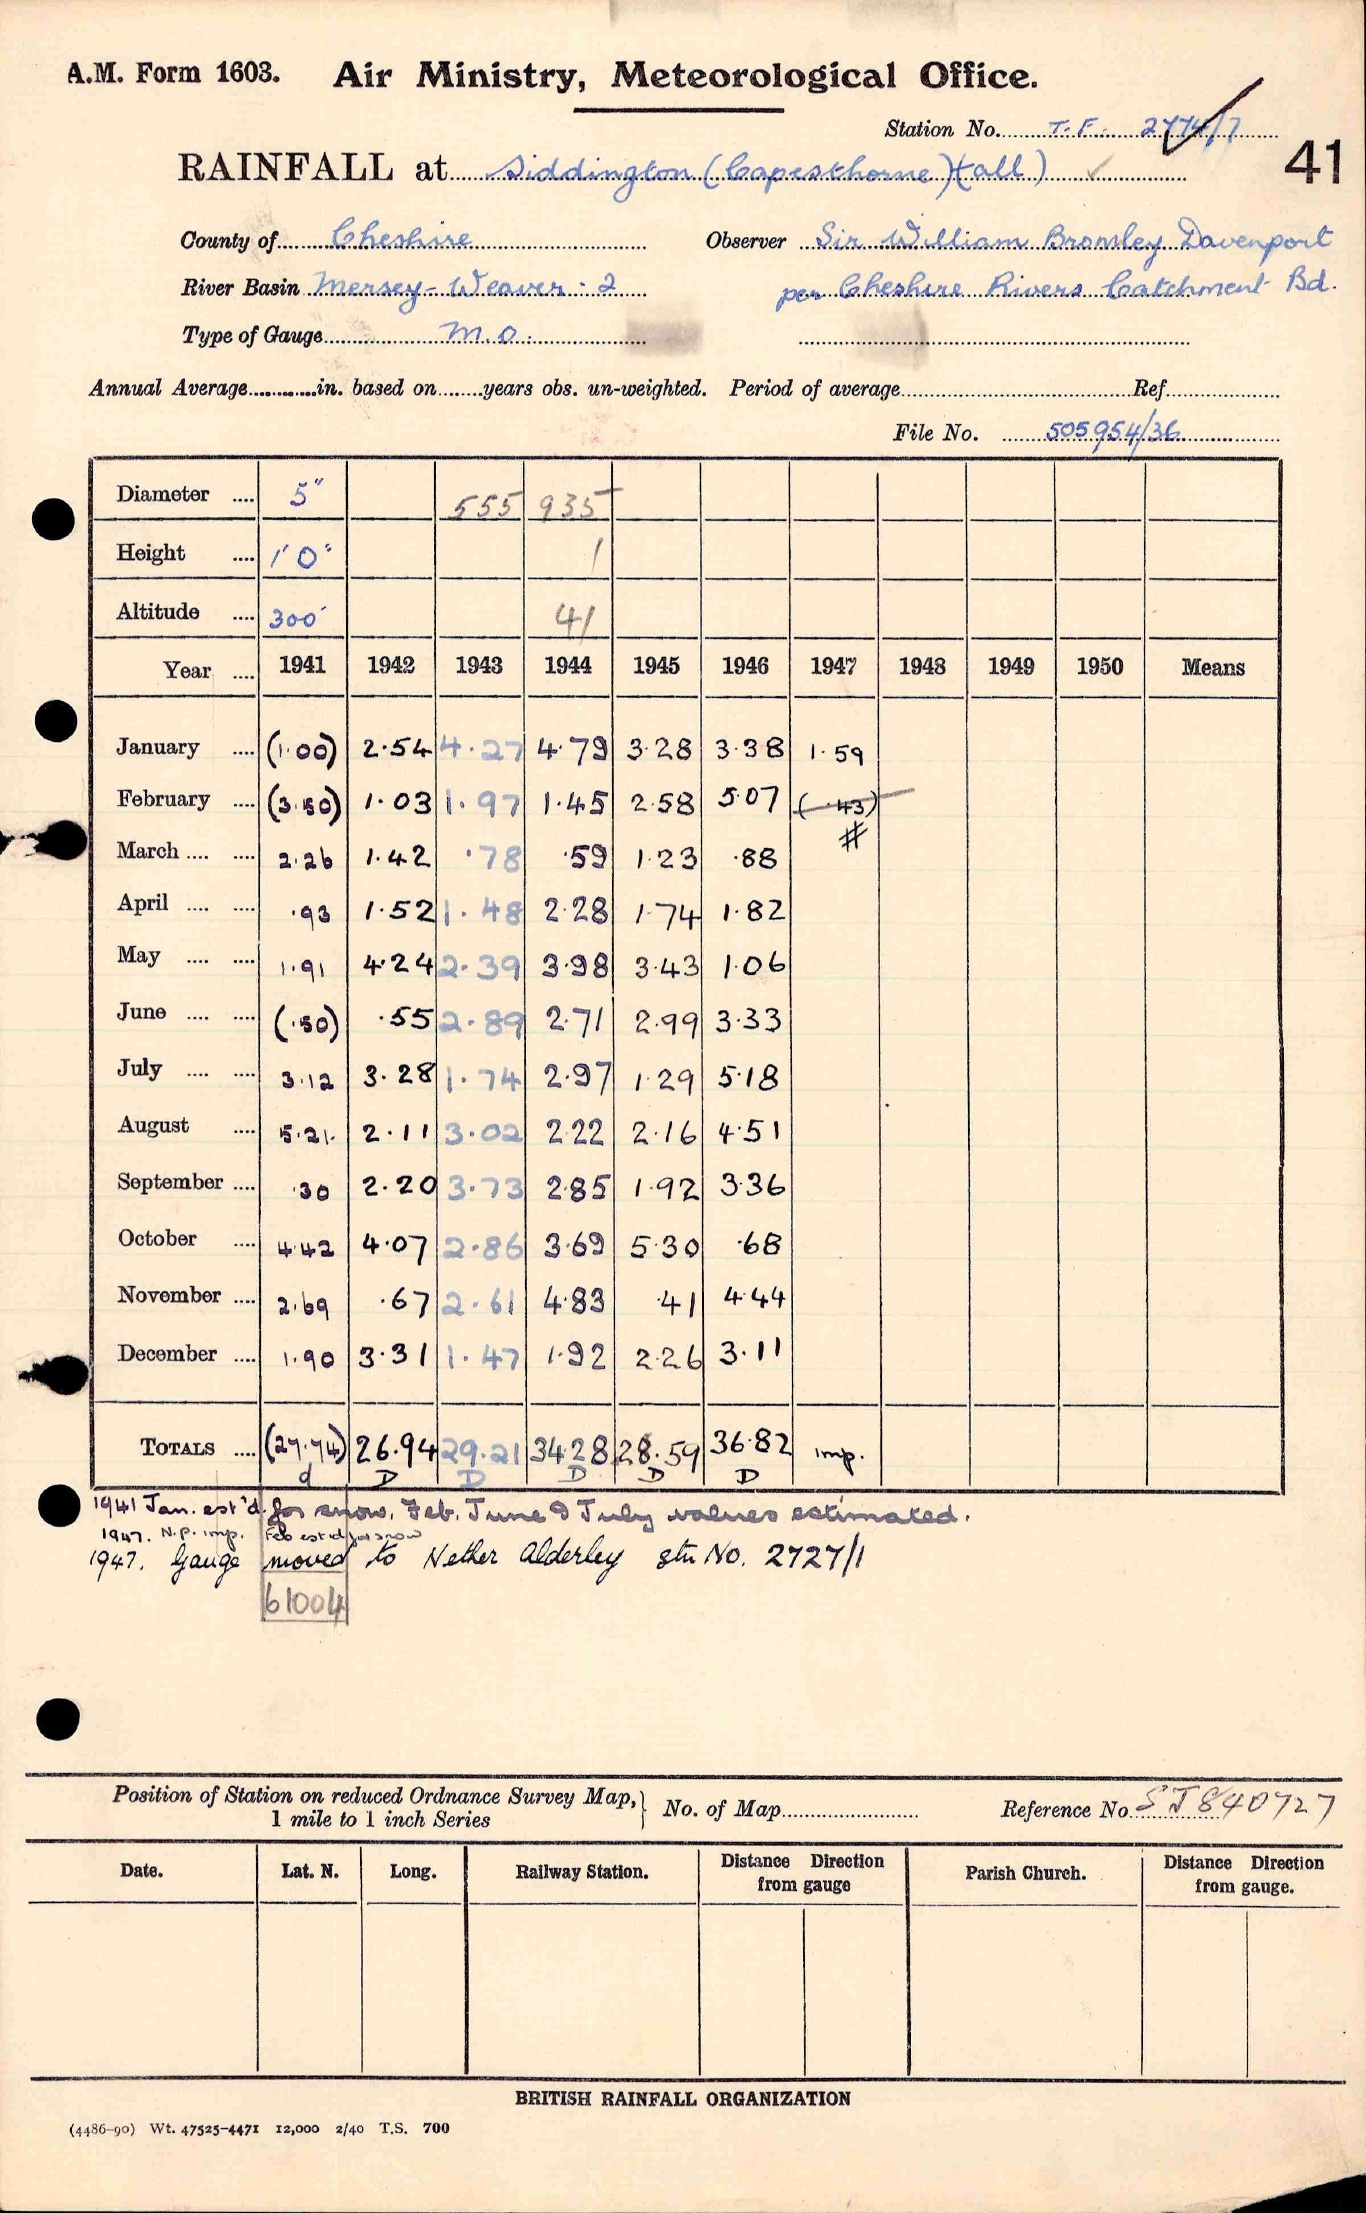 A.M. Form 1603. Air Ministry, Meteorological Office.
Station No. T.F. 2774/7
RAINFALL at Siddington (Capesthorne Hall) 41
County of Cheshire Observer Sir William Bromley Davenport
River Basin Mersey-Weaver-2 per Cheshire Rivers Catchment Bd.
Type of Gauge M.O.
Annual Average in. based on years obs. un-weighted. Period of average Ref.
File No. 505954/36
Diameter 5" 555 935
Height 1'0" 1
Altitude 300' 41
Year 1941 1942 1943 1944 1945 1946 1947 1948 1949 1950 Means
January (1.00) 2.54 4.27 4.79 3.28 3.38 1.59
February (3.50) 1.03 1.97 1.45 2.58 5.07 (.43)
#
March 2.26 1.42 .78 .59 1.23 .88
April .93 1.52 1.48 2.28 1.74 1.82
May 1.91 4.24 2.39 3.98 3.43 1.06
June (.50) .55 2.89 2.71 2.99 3.33
July 3.12 3.28 1.74 2.97 1.29 5.18
August 5.21 2.11 3.02 2.22 2.16 4.51
September .30 2.20 3.73 2.85 1.92 3.36
October 4.42 4.07 2.86 3.69 5.30 .68
November 2.69 .67 2.61 4.83 .41 4.44
December 1.90 3.31 1.47 1.92 2.26 3.11
TOTALS (27.74) 26.94 29.21 34.28 28.59 36.82 imp.
d D D D D D
1941 Jan. est'd. for snow. Feb. June & July values estimated.
1947. N.p. imp. Feb est'd for snow
1947. Gauge moved to Nether Alderley stn No. 2727/1
61004
Position of Station on reduced Ordnance Survey Map, 1 mile to 1 inch Series } No. of Map Reference No. SJ840727
Date. Lat. N. Long. Railway Station. Distance Direction from gauge Parish Church. Distance Direction from gauge.
BRITISH RAINFALL ORGANIZATION
(4486-90) Wt. 47525-4471 12,000 2/40 T.S. 700